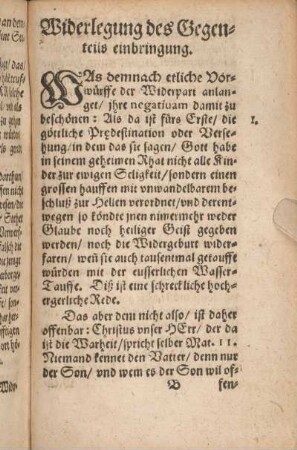 Widerlegung des Gegen-
teils einbringung.
WAs demnach etliche Vor-
würffe der Widerpart anlan-
get/ jhre negatiuam damit zu
beschönen: Als da ist fürs Erste/ die
1.
göttliche Prędestination oder Verse-
hung/ in dem das sie sagen/ Gott habe
in seinem geheimen Rhat nicht alle Kin-
der zur ewigen Seligkeit/ sondern einen
grossen hauffen mit vnwandelbarem be-
schluß zur Hellen verordnet/ vnd derent-
wegen so köndte jnen nimermehr weder
Glaube noch heiliger Geist gegeben
werden/ noch die Widergeburt wider-
faren/ weñ sie auch tausentmal getaufft
würden mit der eusserlichen Wasser-
Tauffe. Diß ist eine schreckliche hoch-
ergerliche Rede.
Das aber dem nicht also/ ist daher
offenbar: Christus vnser HErr/ der da
ist die Warheit/ spricht selber Mat. 11.
Niemand kennet den Vatter/ denn nur
der Son/ vnd wem es der Son wil of-
B
fen-